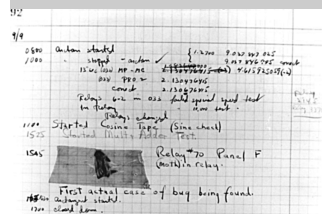 92
9/9
0800 Antan started
1000 " stopped - antan ✓ { 1.2700 9.037 847 025
9.037 846 995 correct
13"uc (032) MP - MC 2.130476415 4.615925059(-2)
033 PRO 2 2.130476415
correct 2.130676415
Relays 6-2 in 033 failed special speed test
in relay 11,000 test.
Relays changed
1100 Started Cosine Tape (Sine check)
1525 Started Multi Adder Test.
1545 Relay #70 Panel F
(moth) in relay.
First actual case of bug being found.
antangent started.
1700 closed down.